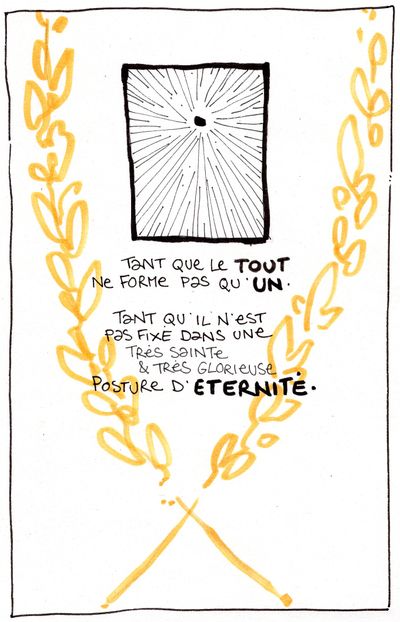 TANT QUE LE TOUT
NE FORME PAS QU'UN.
TANT QU'IL N'EST
PAS FIXE DANS UNE
TRÈS SAINTE
& TRÈS GLORIEUSE
POSTURE D'ETERNITÉ.